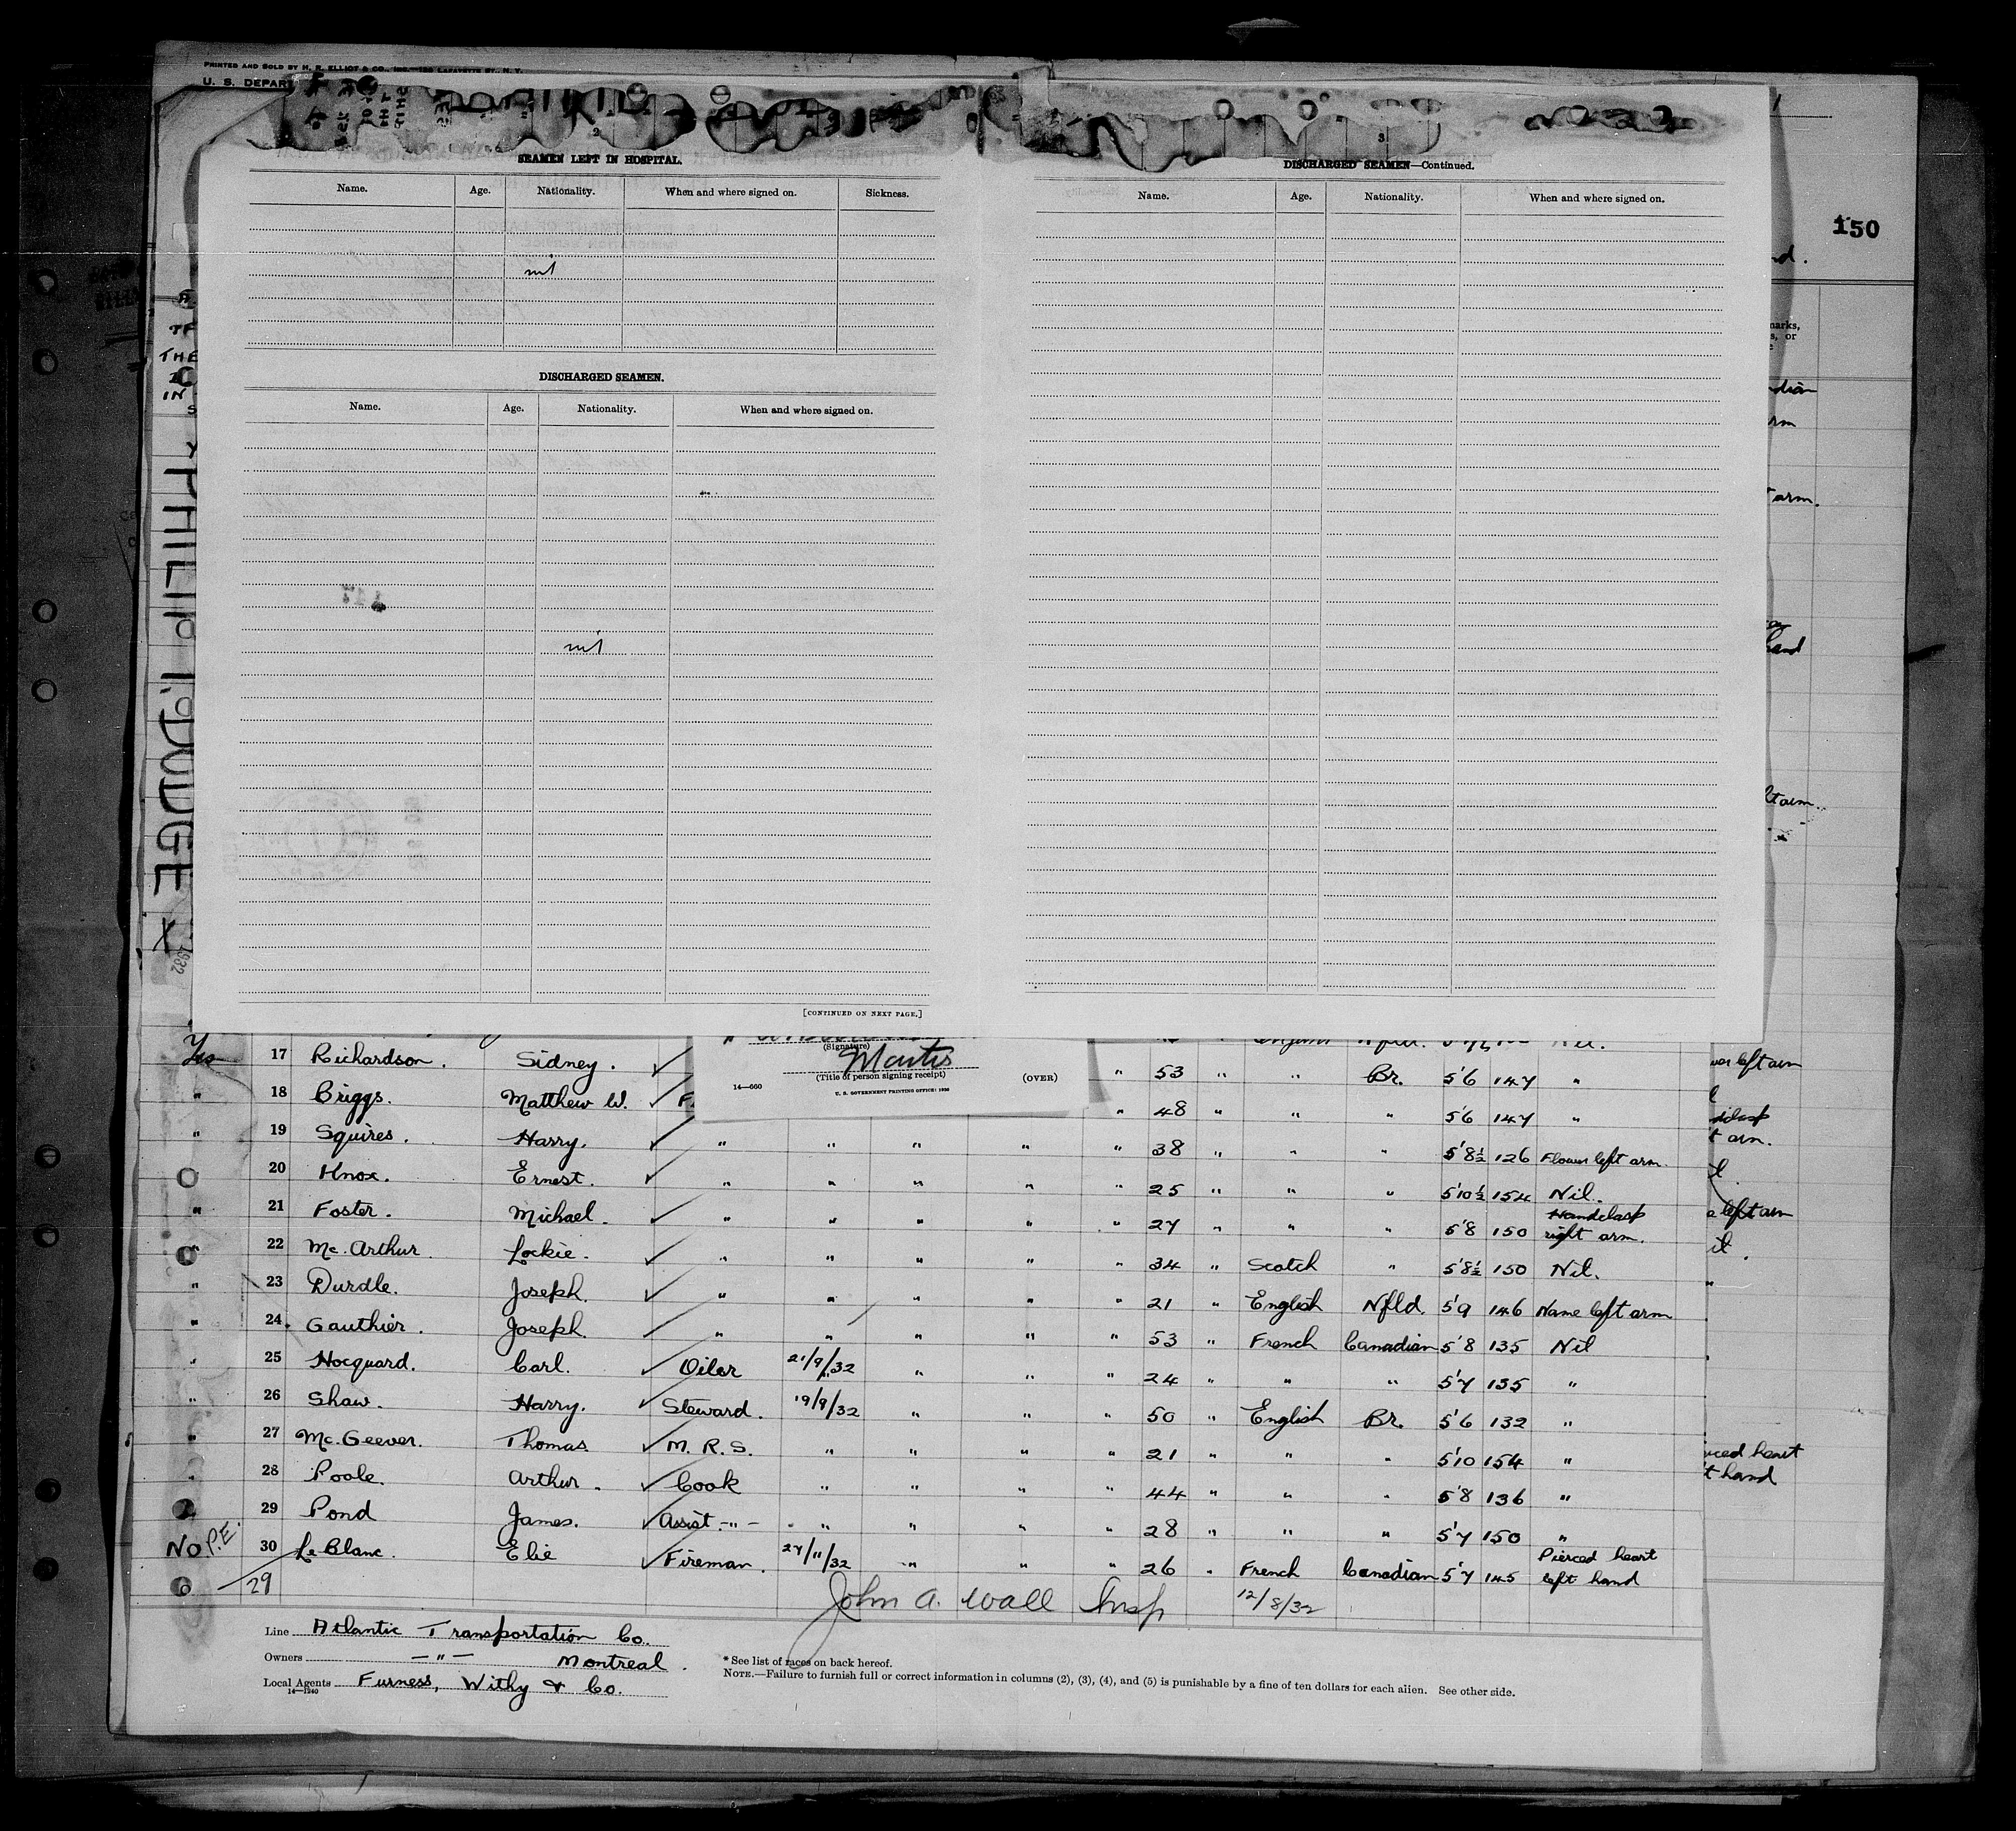 PRINTED AND SOLD BY H. R. ELLIOT & CO., INC.—130 LAFAYETTE ST., N. Y.
U. S. DEPAR
2
SEAMEN LEFT IN HOSPITAL.
Name. Age. Nationality. When and where signed on. Sickness.
nil
DISCHARGED SEAMEN.
Name. Age. Nationality. When and where signed on.
nil
[CONTINUED ON NEXT PAGE.]
3
DISCHARGED SEAMEN—Continued.
Name. Age. Nationality. When and where signed on.
150
nd.
marks,
s, or
dian
rm
t arm.
hand
ft arm.
THE
IN
PHILIP I. DODGE X
1932
(Signature)
(Title of person signing receipt)
14—660 (OVER)
U. S. GOVERNMENT PRINTING OFFICE: 1930
Yes 17 Richardson. Sidney. ✓ " 53 " " Br. 5'6 147 "
" 18 Briggs. Matthew W. ✓ F. " 48 " " " 5'6 147 "
" 19 Squires. Harry. ✓ " " " " " 38 " " " 5'8½ 126 Flower left arm.
20 Knox. Ernest. ✓ " " " " " 25 " " " 5'10½ 154 Nil.
" 21 Foster. Michael. ✓ " " " " " 27 " " " 5'8 150 Handclasp right arm.
" 22 Mc. Arthur. Lockie. ✓ " " " " " 34 " Scotch " 5'8½ 150 Nil.
" 23 Durdle. Joseph. ✓ " " " " " 21 " English Nfld. 5'9 146 Name left arm
" 24. Gauthier. Joseph. ✓ " " " " " 53 " French Canadian 5'8 135 Nil
" 25 Hocquard. Carl. ✓ Oiler 21/9/32 " " " 24 " " " 5'7 135 "
" 26 Shaw. Harry. ✓ Steward. 19/9/32 " " " 50 " English Br. 5'6 132 "
" 27 Mc. Geever. Thomas ✓ M. R. S. " " " " 21 " " " 5'10 154 "
" 28 Poole. Arthur. ✓ Cook " " " " 44 " " " 5'8 136 "
29 Pond James. ✓ Assist. -"- " " " " 28 " " " 5'7 150 "
No P.E. 30 Le Blanc. Elie ✓ Fireman. 27/11/32 " " " 26 " French Canadian 5'7 145 Pierced heart left hand
29
John A. Wall Insp 12/8/32
ver left arm
t arm.
left arm
rced heart
t hand
Line Atlantic Transportation Co.
Owners —"— Montreal.
Local Agents Furness, Withy & Co.
14—1240
* See list of races on back hereof.
NOTE.—Failure to furnish full or correct information in columns (2), (3), (4), and (5) is punishable by a fine of ten dollars for each alien. See other side.